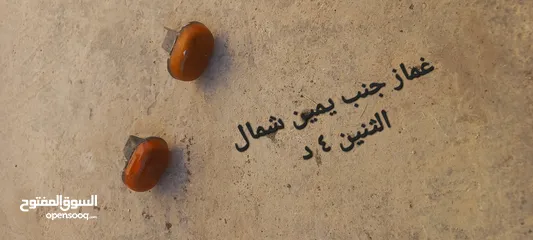 غماز جنب يمين شمال
الثنين ٤ د
السوق المفتوح
opensooq.com